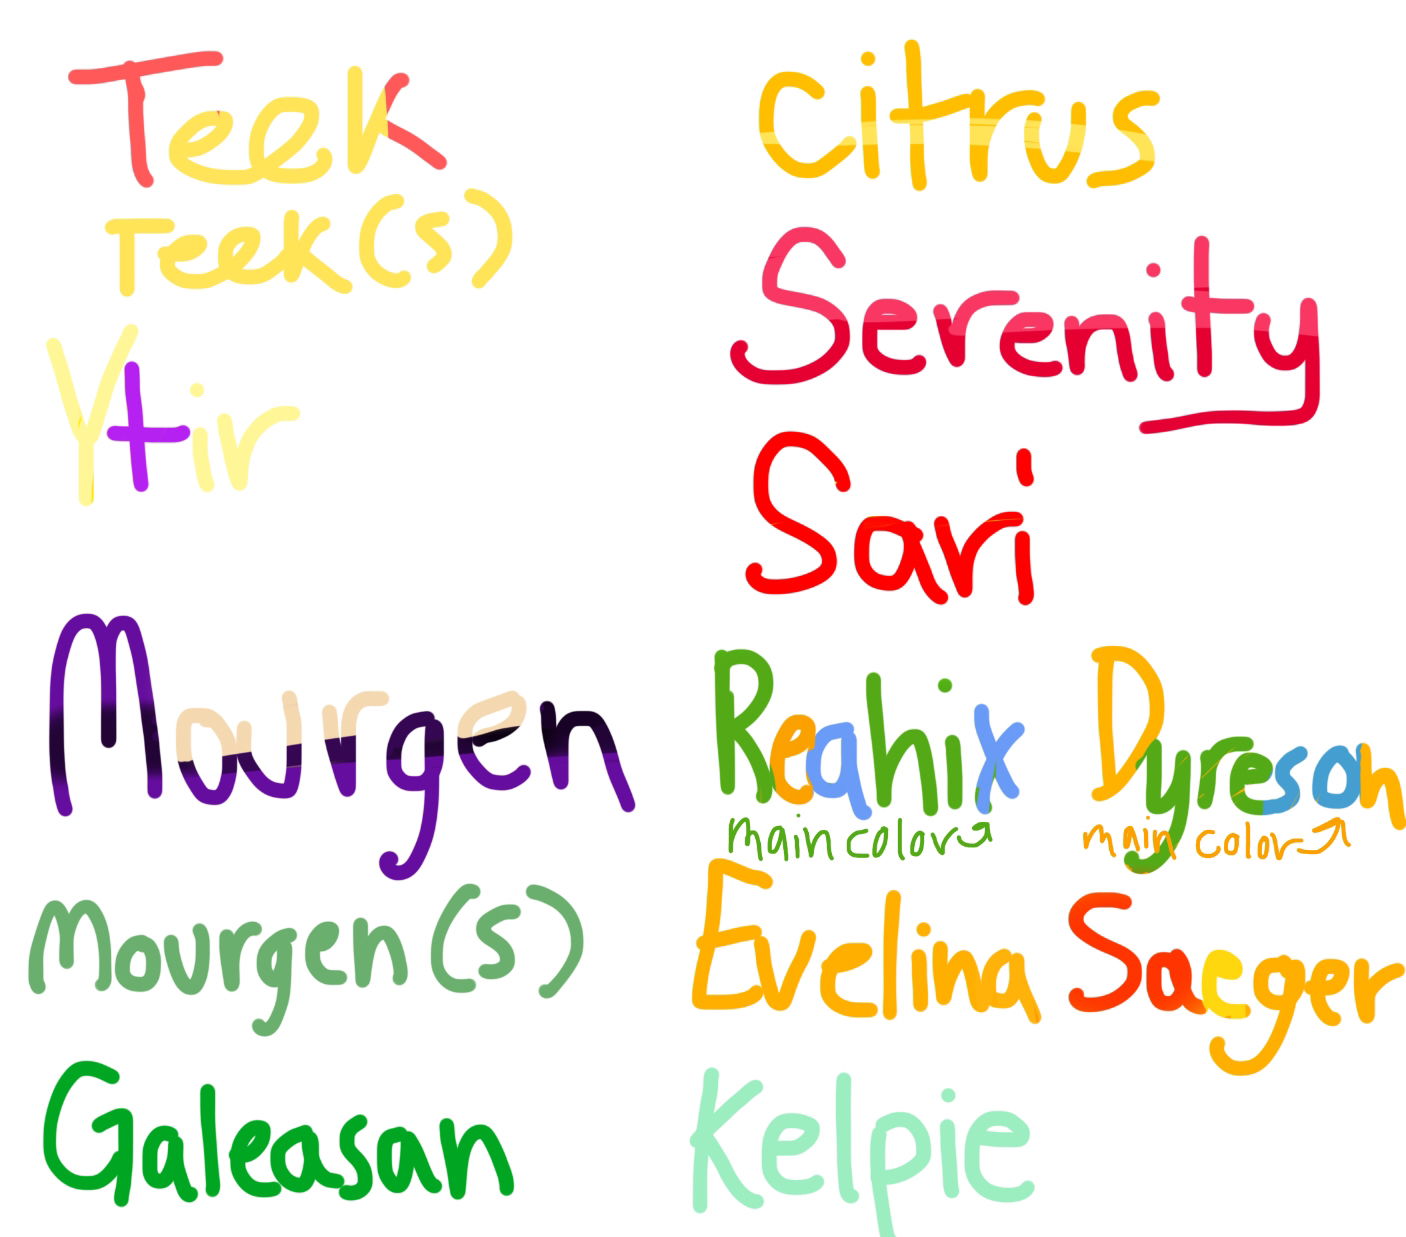 Teek
Teek(s)
Ytir
Mourgen
Mourgen(s)
Galeasan
Citrus
Serenity
Sari
Reahix Dyreson
main color main color
Evelina Saeger
Kelpie